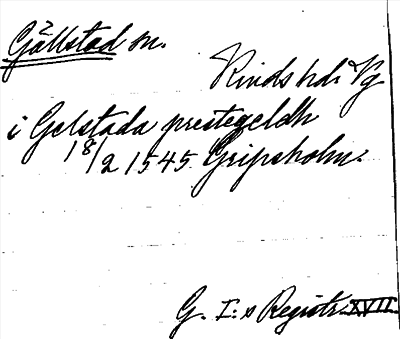 Gällstad sn.
Kinds hd. Vg
i Gelstada prestegeldh
18/2 1545 Gripsholm.
G. I:s Registr. XVII